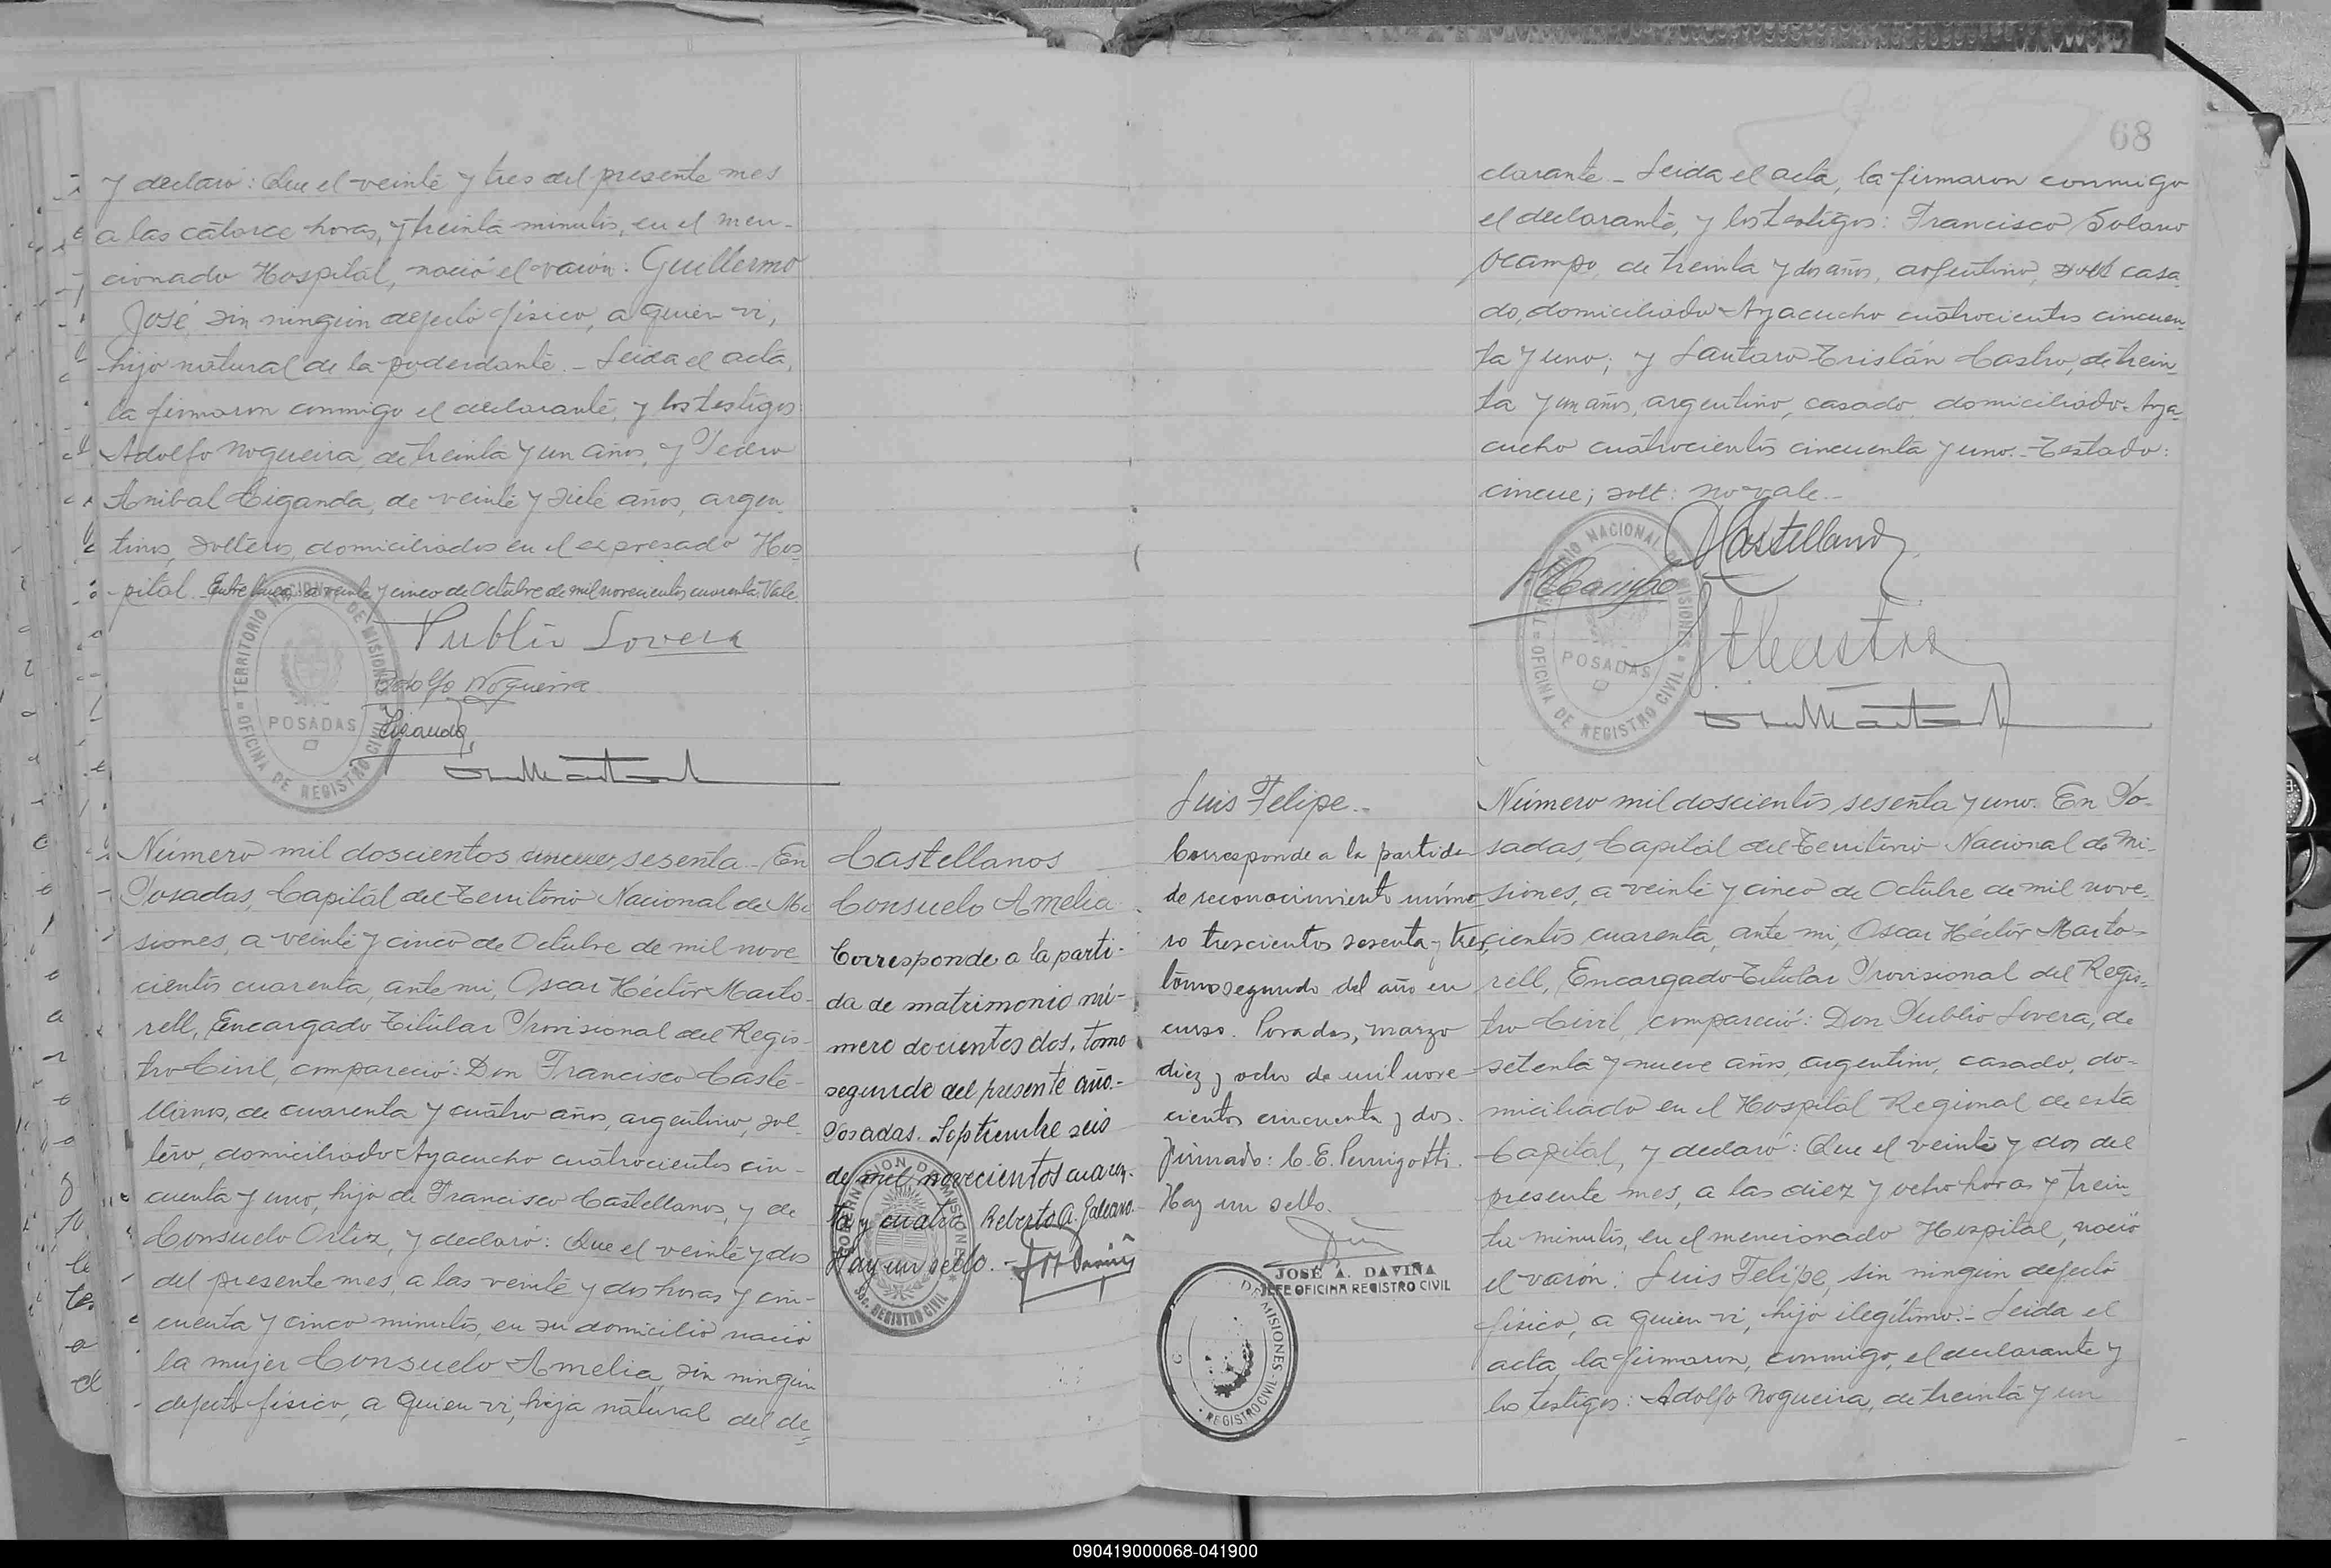 y declaró: Que el veinte y tres del presente mes
a las catorce horas, y treinta minutos, en el men-
cionado Hospital, nació el varón: Guillermo
José, sin ningún defecto físico, a quien vi,
hijo natural de la poderdante. - Leida el acta,
la firmaron conmigo el declarante, y los testigos:
Adolfo Nogueira, de treinta y un años, y Pedro
Anibal Ciganda, de veinte y siete años, argen
tinos, solteros, domiciliados en el expresado Hos-
pital. Entre linea: a veinte y cinco de Octubre de mil novecientos cuarenta. Vale.
Publio Lovera
Adolfo Nogueira
Ciganda
TERRITORIO NACIONAL DE MISIONES
POSADAS
OFICINA DE REGISTRO CIVIL
Número mil doscientos cincue sesenta. - En
Posadas, Capital del Territorio Nacional de Mi
siones, a veinte y cinco de Octubre de mil nove-
cientos cuarenta, ante mi, Oscar Héctor Marto-
rell, Encargado Titular Provisional del Regis-
tro Civil, compareció: Don Francisco Caste-
llanos, de cuarenta y cuatro años, argentino, sol-
tero, domiciliado Ayacucho cuatrocientos cin-
cuenta y uno, hijo de Francisco Castellanos, y de
Consuelo Ortiz, y declaró: Que el veinte y dos
del presente mes, a las veinte y dos horas y cin-
cuenta y cinco minutos, en su domicilio nació
la mujer Consuelo Amelia, sin ningún
defecto físico, a quien vi, hija natural del de-
Castellanos
Consuelo Amelia
Corresponde a la parti-
da de matrimonio nú-
mero docientos dos, tomo
segundo del presente año.-
Posadas. Septiembre seis
de mil novecientos cuaren-
ta y cuatro Roberto A. Galeano.
Hay un sello.-
GOBERNACION DE MISIONES
SEC. REGISTRO CIVIL
68
clarante - Leida el acta, la firmaron conmigo
el declarante, y los testigos: Francisco Solano
Ocampo, de treinta y dos años, argentino, solt casa
do, domiciliado Ayacucho cuatrocientos cincuen
ta y uno; y Lautaro Tristán Castro, de trein-
ta y un años, argentino, casado, domiciliado Aya-
cucho cuatrocientos cincuenta y uno. - Testado:
cincue; solt: no vale.-
Castellanos
Ocampo
LTCastro
TERRITORIO NACIONAL DE MISIONES
POSADAS
OFICINA DE REGISTRO CIVIL
Luis Felipe.-
Corresponde a la partida
de reconocimiento núme-
ro trescientos sesenta y tres,
tomo segundo del año en
curso. Posadas, marzo
diez y ocho de mil nove-
cientos cincuenta y dos.
Firmado: C. E. Perrigotti.
Hay un sello.
JOSÉ A. DAVIÑA
JEFE OFICINA REGISTRO CIVIL
DE MISIONES
REGISTRO CIVIL
Número mil doscientos sesenta y uno. En Po-
sadas, Capital del Territorio Nacional de Mi-
siones, a veinte y cinco de Octubre de mil nove-
cientos cuarenta, ante mi, Oscar Héctor Marto-
rell, Encargado Titular Provisional del Regis-
tro Civil, compareció: Don Publio Lovera, de
setenta y nueve años, argentino, casado, do-
miciliado en el Hospital Regional de esta
Capital, y declaró: Que el veinte y dos del
presente mes, a las diez y ocho horas y trein-
ta minutos, en el mencionado Hospital, nació
el varón: Luis Felipe, sin ningún defecto
físico, a quien vi, hijo ilegítimo.- Leida el
acta, la firmaron, conmigo, el declarante y
los testigos: Adolfo Nogueira, de treinta y un
090419000068-041900